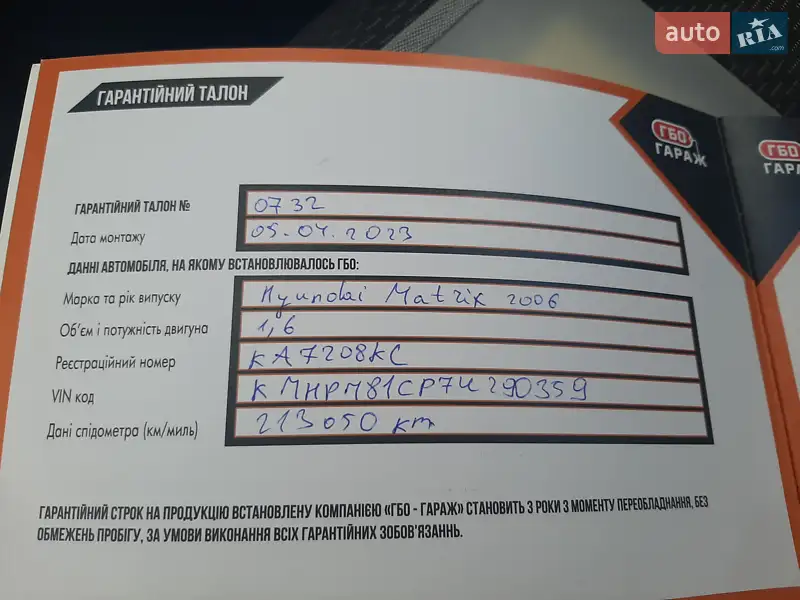 auto RIA .com
ГАРАНТІЙНИЙ ТАЛОН
ГБО ГАРАЖ
ГБО
ГАРА
ГАРАНТІЙНИЙ ТАЛОН № 0732
Дата монтажу 05.04.2023
ДАННІ АВТОМОБІЛЯ, НА ЯКОМУ ВСТАНОВЛЮВАЛОСЬ ГБО:
Марка та рік випуску Hyundai Matrix 2006
Об'єм і потужність двигуна 1,6
Реєстраційний номер КА7208КС
VIN код KMHPM81CP7U290359
Дані спідометра (км/миль) 213050 km
ГАРАНТІЙНИЙ СТРОК НА ПРОДУКЦІЮ ВСТАНОВЛЕНУ КОМПАНІЄЮ «ГБО - ГАРАЖ» СТАНОВИТЬ 3 РОКИ З МОМЕНТУ ПЕРЕОБЛАДНАННЯ, БЕЗ
ОБМЕЖЕНЬ ПРОБІГУ, ЗА УМОВИ ВИКОНАННЯ ВСІХ ГАРАНТІЙНИХ ЗОБОВ'ЯЗАННЬ.